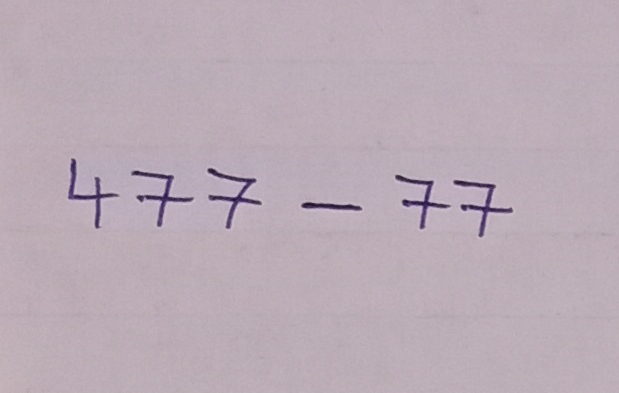 477 - 77